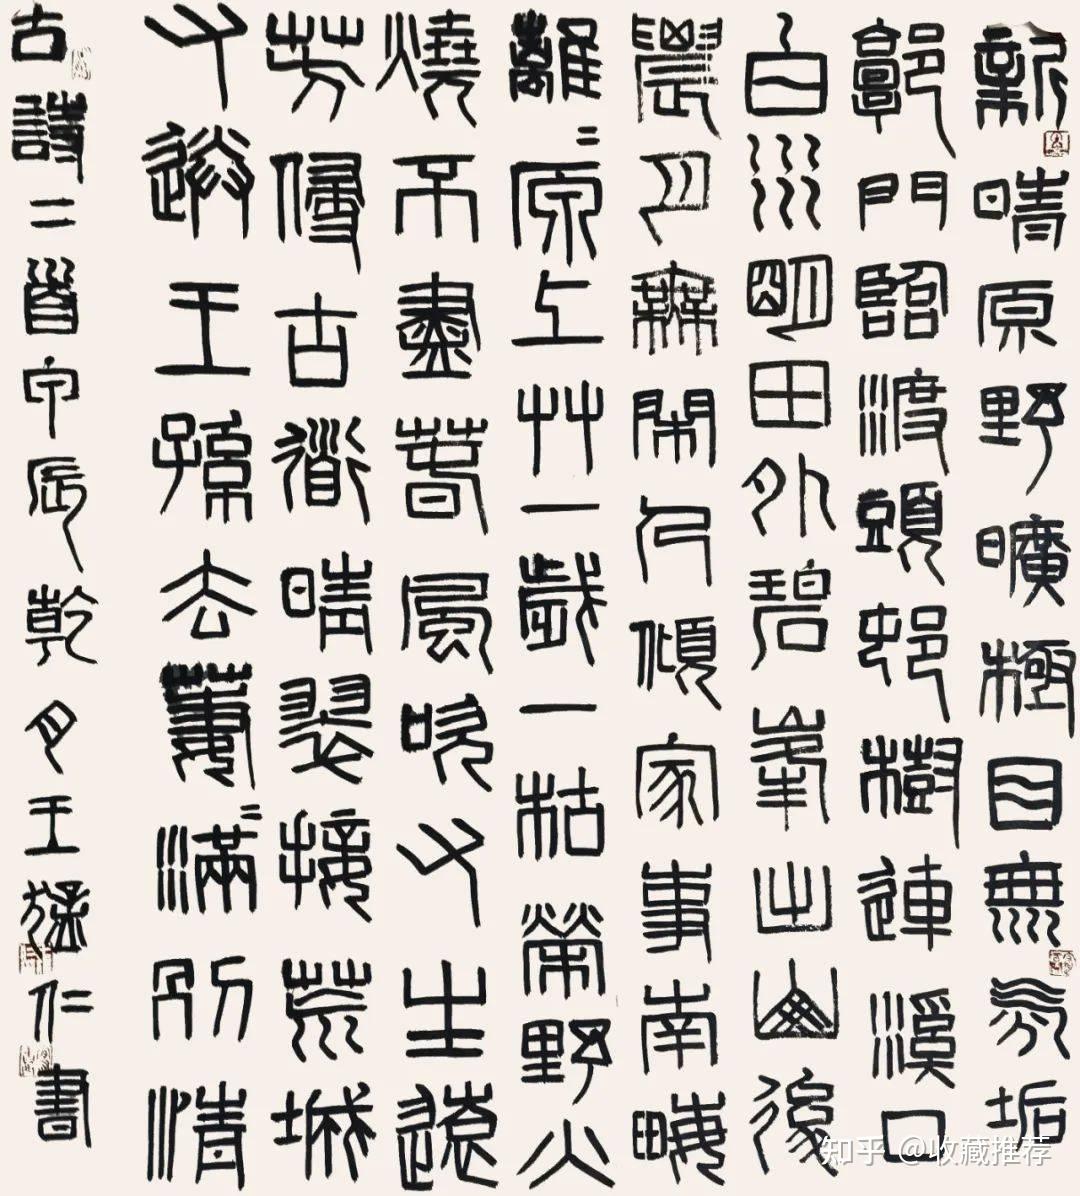 新晴原野曠極目無氛垢
郭門臨渡頭村樹連溪口
白水明田外碧峯出山後
農月無閒人傾家事南畮
離〻原上艸一歲一枯榮野火
燒不盡春風吹又生遠
芳侵古道晴翠接荒城
又送王孫去萋〻滿別情
古詩二首甲辰乾月王猛仁書
知乎 @收藏推荐